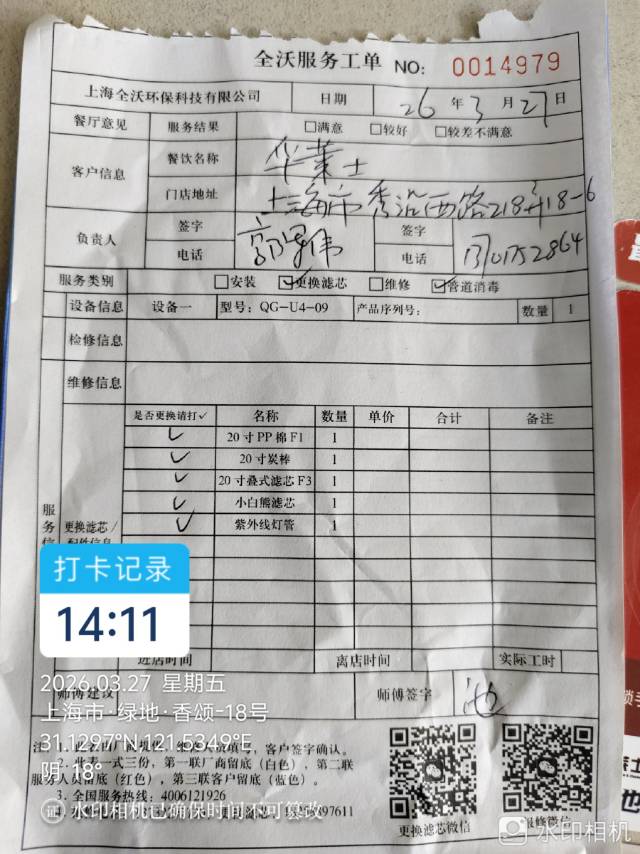 全沃服务工单 NO: 0014979
上海全沃环保科技有限公司 日期 26 年 3 月 27 日
餐厅意见 服务结果 □满意 □较好 □较差不满意
客户信息 餐饮名称 华莱士
门店地址 上海市秀沿西路218弄18-6
负责人 签字 签字
电话 电话
服务类别 □安装 ☑更换滤芯 □维修 ☑管道消毒
设备信息 设备一 型号: QG-U4-09 产品序列号: 数量 1
检修信息
维修信息
是否更换请打✓ 名称 数量 单价 合计 备注
✓ 20寸PP棉F1 1
✓ 20寸炭棒 1
✓ 20寸叠式滤芯F3 1
✓ 小白熊滤芯 1
✓ 紫外线灯管 1
服务信
更换滤芯/
配件信息
打卡记录
14:11
进店时间 离店时间 实际工时
2026.03.27 星期五
师傅建议 师傅签字
上海市·绿地·香颂-18号
31.1297°N 121.5349°E
阴 18°
注: 1. 客户签字确认。
2. 此表一式三份,第一联厂商留底(白色),第二联
服务人员留底(红色),第三联客户留底(蓝色)。
3. 全国服务热线: 4006121926
水印相机已确保时间不可篡改
更换滤芯微信 报修微信
水印相机